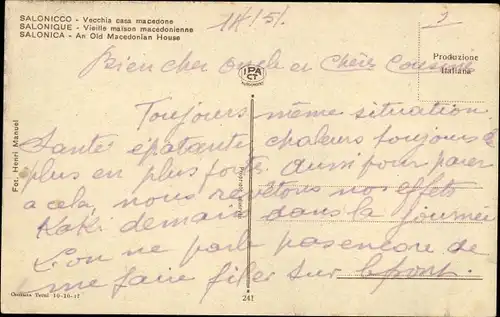 SALONICCO - Vecchia casa macedone
SALONIQUE - Vieille maison macedonienne
SALONICA - An Old Macedonian House
3
Produzione
Italiana
IPA
CT
AUTOCROMO
Bien cher Oncle et Chère Cousine
Toujours même situation
Santé épatante, chaleurs toujours de
plus en plus fortes. Aussi pour parer
à cela, nous revêtons nos effets
Kaki demain dans la journée
L'on ne parle pas encore de
me faire filer sur le front.
Fot. Henri Manuel
Censura Terni 10-10-17
241